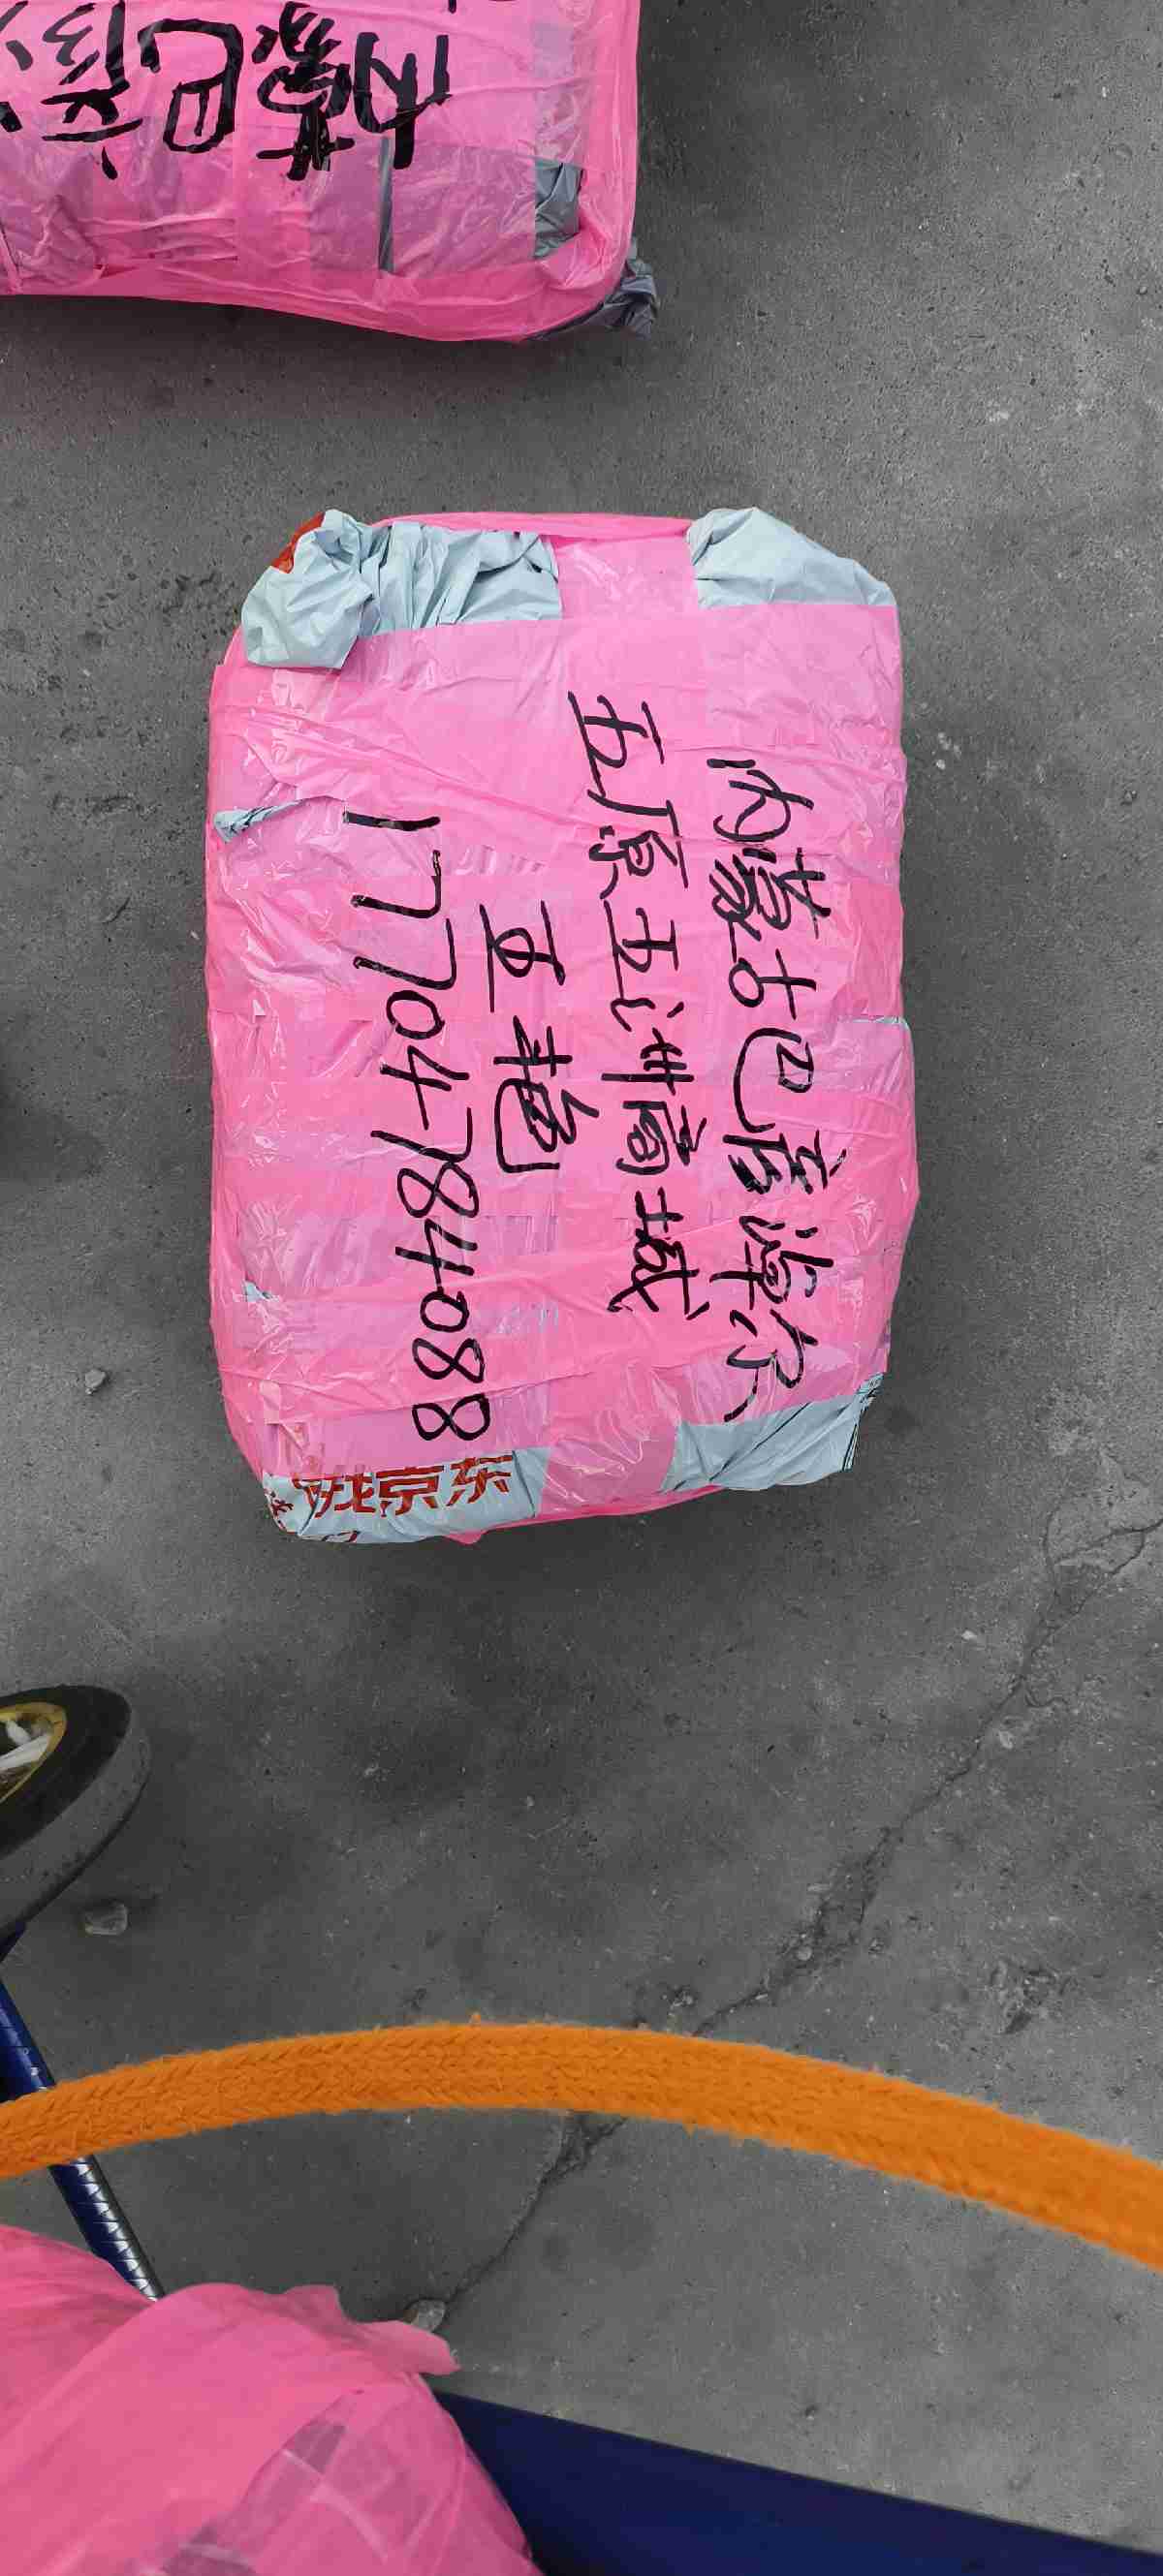 内蒙古巴彦淖尔
五原五洲商城
王艳
17704784088
京东